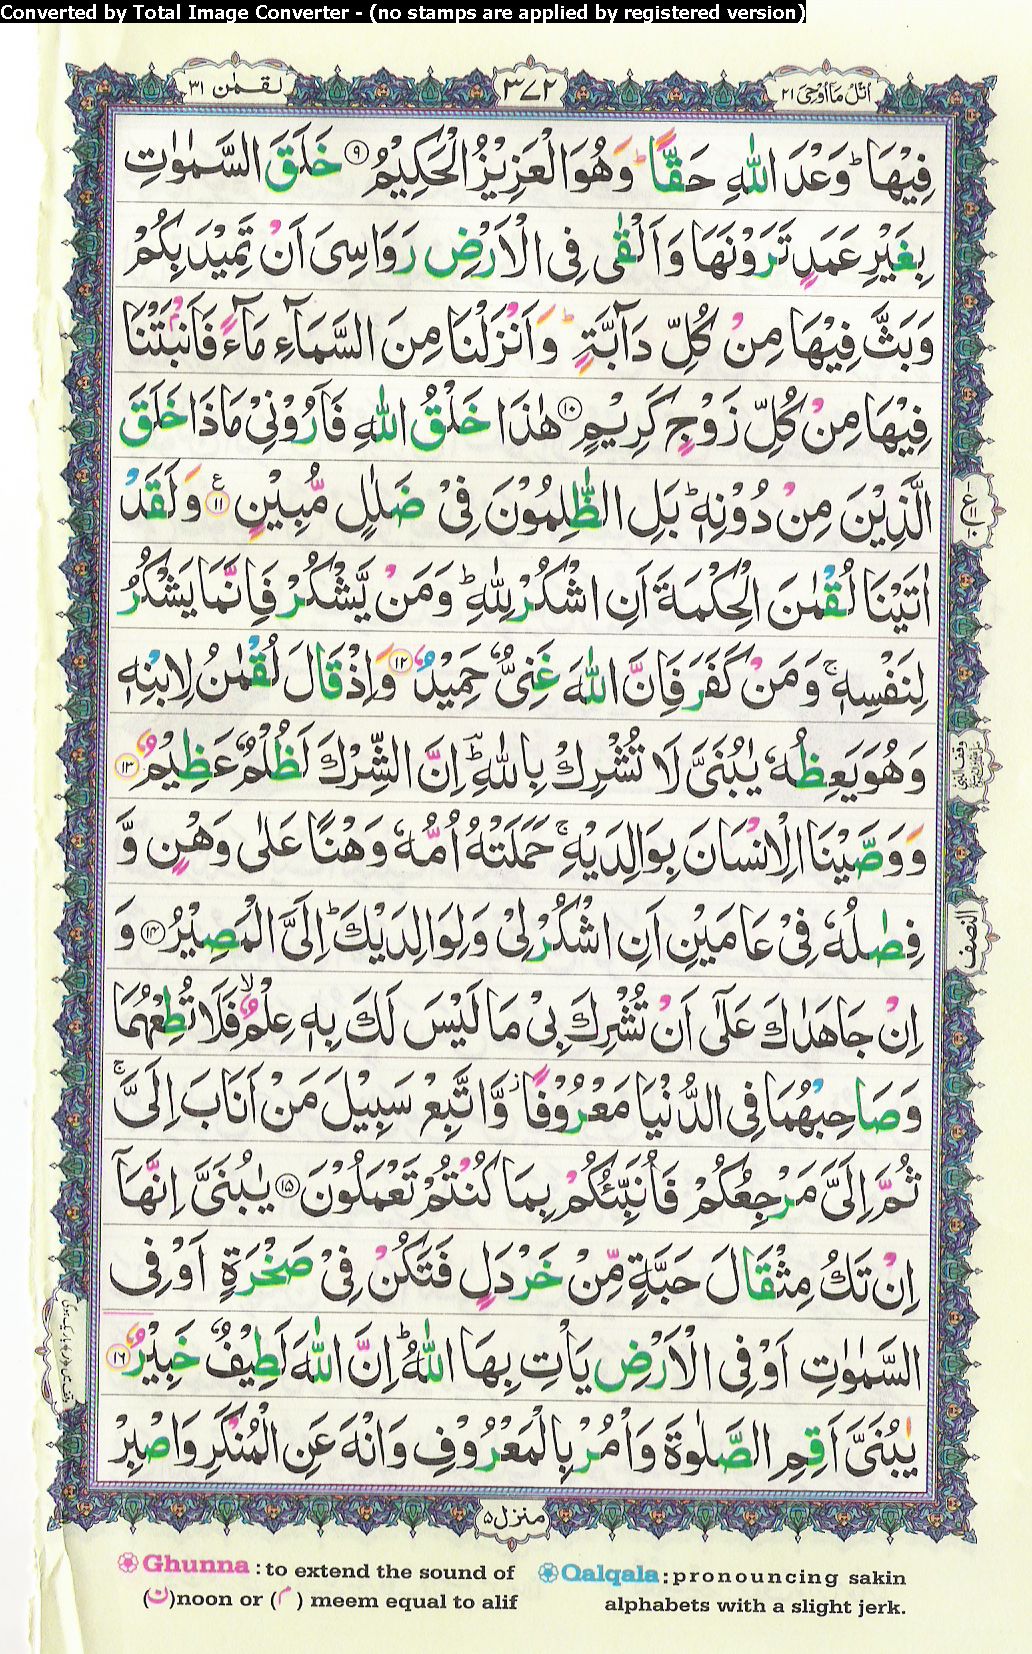 Converted by Total Image Converter - (no stamps are applied by registered version)
اتل ما اوحی ۲۱
۳۷۲
لقمٰن ۳۱
فِيْهَا ؕ وَعْدَ اللّٰهِ حَقًّا ؕ وَهُوَ الْعَزِيْزُ الْحَكِيْمُ ۹ خَلَقَ السَّمٰوٰتِ
بِغَيْرِ عَمَدٍ تَرَوْنَهَا وَاَلْقٰى فِى الْاَرْضِ رَوَاسِىَ اَنْ تَمِيْدَ بِكُمْ
وَبَثَّ فِيْهَا مِنْ كُلِّ دَآبَّةٍ ؕ وَاَنْزَلْنَا مِنَ السَّمَآءِ مَآءً فَاَنْۢبَتْنَا
فِيْهَا مِنْ كُلِّ زَوْجٍ كَرِيْمٍ ۱۰ هٰذَا خَلْقُ اللّٰهِ فَاَرُوْنِىْ مَاذَا خَلَقَ
الَّذِيْنَ مِنْ دُوْنِهٖ ؕ بَلِ الظّٰلِمُوْنَ فِىْ ضَلٰلٍ مُّبِيْنٍ ۱۱ ع وَلَقَدْ
اٰتَيْنَا لُقْمٰنَ الْحِكْمَةَ اَنِ اشْكُرْ لِلّٰهِ ؕ وَمَنْ يَّشْكُرْ فَاِنَّمَا يَشْكُرُ
لِنَفْسِهٖ ۚ وَمَنْ كَفَرَ فَاِنَّ اللّٰهَ غَنِىٌّ حَمِيْدٌ ۱۲ وَاِذْ قَالَ لُقْمٰنُ لِابْنِهٖ
وَهُوَ يَعِظُهٗ يٰبُنَىَّ لَا تُشْرِكْ بِاللّٰهِ ؕ اِنَّ الشِّرْكَ لَظُلْمٌ عَظِيْمٌ ۱۳
وَوَصَّيْنَا الْاِنْسَانَ بِوَالِدَيْهِ ۚ حَمَلَتْهُ اُمُّهٗ وَهْنًا عَلٰى وَهْنٍ وَّ
فِصٰلُهٗ فِىْ عَامَيْنِ اَنِ اشْكُرْ لِىْ وَلِوَالِدَيْكَ ؕ اِلَىَّ الْمَصِيْرُ ۱۴ وَ
اِنْ جَاهَدٰكَ عَلٰٓى اَنْ تُشْرِكَ بِىْ مَا لَيْسَ لَكَ بِهٖ عِلْمٌ ۙ فَلَا تُطِعْهُمَا
وَصَاحِبْهُمَا فِى الدُّنْيَا مَعْرُوْفًا ؗ وَّاتَّبِعْ سَبِيْلَ مَنْ اَنَابَ اِلَىَّ ۚ
ثُمَّ اِلَىَّ مَرْجِعُكُمْ فَاُنَبِّئُكُمْ بِمَا كُنْتُمْ تَعْمَلُوْنَ ۱۵ يٰبُنَىَّ اِنَّهَاۤ
اِنْ تَكُ مِثْقَالَ حَبَّةٍ مِّنْ خَرْدَلٍ فَتَكُنْ فِىْ صَخْرَةٍ اَوْ فِى
السَّمٰوٰتِ اَوْ فِى الْاَرْضِ يَاْتِ بِهَا اللّٰهُ ؕ اِنَّ اللّٰهَ لَطِيْفٌ خَبِيْرٌ ۱۶
يٰبُنَىَّ اَقِمِ الصَّلٰوةَ وَاْمُرْ بِالْمَعْرُوْفِ وَانْهَ عَنِ الْمُنْكَرِ وَاصْبِرْ
ع ۱۱
النصف
منزل ۵
Ghunna : to extend the sound of
(ن)noon or (م) meem equal to alif
Qalqala : pronouncing sakin
alphabets with a slight jerk.